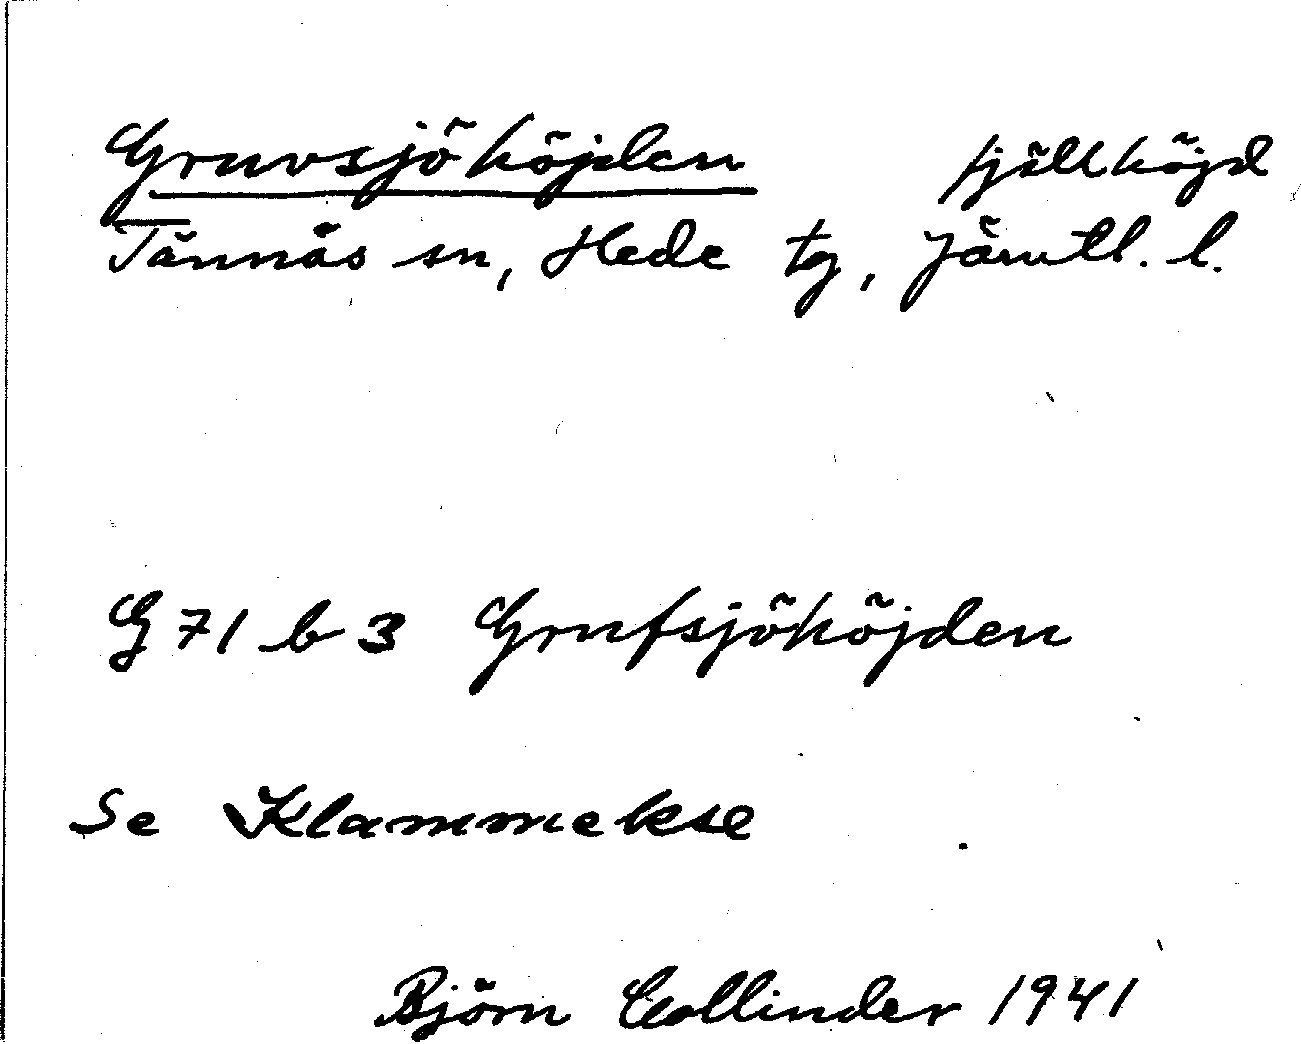 Gruvsjöhöjden fjällhöjd
Tännäs sn, Hede tg, Jämtl. l.
G 71 b 3 Grufsjöhöjden
Se Klammekse
Björn Collinder 1941